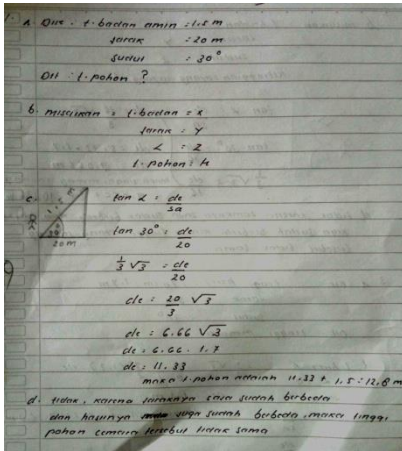 a. Dik : t. badan amin : 1.5 m
Jarak : 20 m
Sudut : 30°
Dit : t. pohon ?
b. misalkan : t. badan = x
Jarak = y
∠ = z
t. pohon = h
c. tan ∠ = de/sa
20 m
30°
tan 30° = de/20
1/3 √3 = de/20
de = 20/3 √3
de = 6.66 √3
de = 6.66 . 1.7
de = 11.33
maka t. pohon adalah 11.33 + 1.5 = 12.8 m
d. tidak, karena jaraknya saja sudah berbeda
dan hasilnya juga sudah berbeda, maka tinggi
pohon cemara tersebut tidak sama